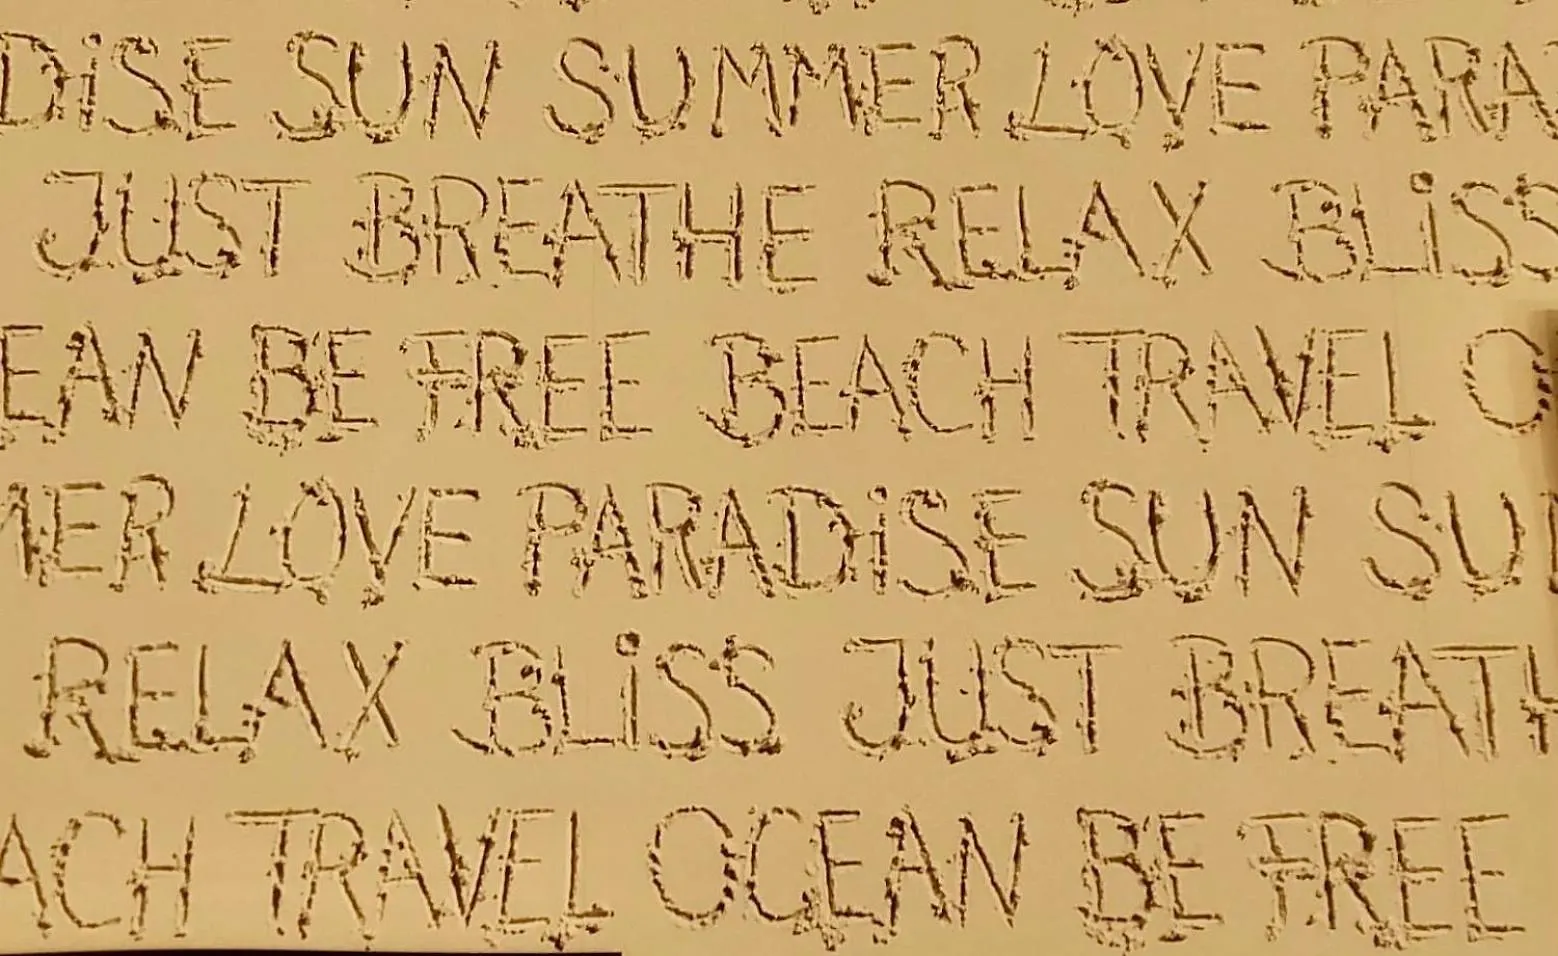 DiSE SUN SUMMER LOVE PARA
JUST BREATHE RELAX BLiSS
EAN BE FREE BEACH TRAVEL O
MER LOVE PARADiSE SUN SU
RELAX BLiSS JUST BREATH
ACH TRAVEL OCEAN BE FREE